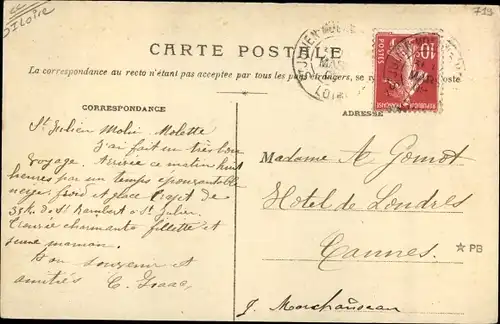 Loire
719
CARTE POSTALE
La correspondance au recto n'étant pas acceptée par tous les pays étrangers, se poste
CORRESPONDANCE
ADRESSE
POSTES
10
MARS
LOIRE
St Julien Molin Molette
J'ai fait un très bon
voyage. Arrivée ce matin huit
heures par un temps épouvantable
neige, froid et glace trajet de
35k. de St Rambert à St Julien.
Trouvée charmante fillette et
jeune maman.
Bon souvenir et
amitiés C. Isaac
Madame A Gomot
Hotel de Londres
Cannes.
J. Marchandeau
* PB